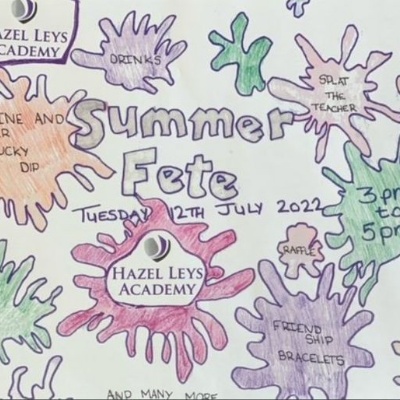 HAZEL LEYS
ACADEMY
DRINKS
SPLAT
THE
TEACHER
AND
LUCKY
DIP
Summer
Fete
TUESDAY 12TH JULY 2022
3pm
to
5pm
RAFFLE
HAZEL LEYS
ACADEMY
FRIEND
SHIP
BRACELETS
AND MANY MORE